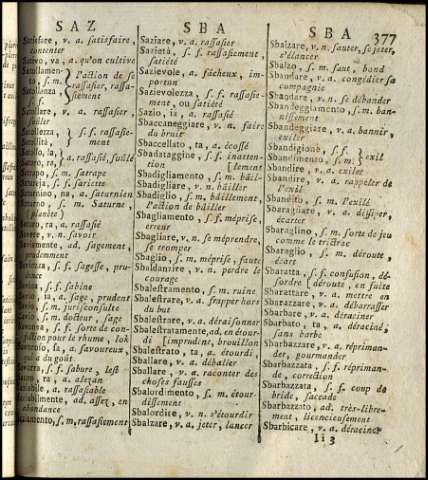 SAZ
SBA
SBA
377
Satisfare, v. a. satisfaire,
contenter
Sativo, va, a. qu'on cultive
l'action de se
rassasier, rassa-
siement
v. a. rassasier
s. f. rassasie-
ment
a. rassasié, saulé
s. m. satrape
s. f. sariette
na, a. saturnien
s. m. Saturne
planite)
ta, a. rassasié
v. n. savoir
ad. sagement,
prudemment
s. f. sagesse, pru-
dence
s. f. sabine
ia, a. sage, prudent
s. m. jurisconsulte
s. m. docteur, sage
s. f. sorte de con-
pour le rhume, lok
a. savoureux,
s. f. sabure, lest
ta, a. alezan
a. rassasiable
ad. assez, en
abondance
s. m. rassasiement
Saziare, v. a. rassasier
Sazietà, s. f. rassasiement,
satiété
Sazievole, a. fâcheux, im-
porton
Sazievolezza, s. f. rassasie-
ment, ou satiété
Sazio, ia, a. rassasié
Sbaccaneggiare, v. n. faire
du bruit
Sbaccellato, ta, a. écossé
Sbadataggine, s. f. inatten-
tion [lement
Sbadigliamento, s. m. bâil-
Sbadigliare, v. n. bâiller
Sbadiglio, s. m. bâillement,
l'action de bâiller
Sbagliamento, s. f. méprise,
erreur
Sbagliare, v. n. se méprendre,
se tromper
Sbaglio, s. m. méprise, faute
Sbaldanzire, v. a. perdre le
courage
Sbalestramento, s. m. ruine
Sbalestrare, v. a. frapper hors
du but
Sbalestrare, v. a. déraisonner
Sbalestratamente, ad. en étour-
di [imprudent, brouillon
Sbalestrato, ta, a. étourdi,
Sballare, v. a. déballer
Sballare, v. a. raconter des
choses fausses
Sbalordimento, s. m. étour-
dissement
Sbalordire, v. n. s'étourdir
Sbalzare, v. a. jeter, lancer
Sbalzare, v. n. sauter, se jeter,
s'élancer
Sbalzo, s. m. saut, bond
Sbandare, v. a. congédier sa
compagnie
Sbandare, v. n. se débander
Sbandeggiamento, s. m. ban-
nissement
Sbandeggiare, v. a. bannir,
exiler
Sbandigione, s. f.
Sbandimento, s. m. exil
Sbandire, v. a. exiler
Sbandire, v. a. rappeler de
l'exil
Sbandito, s. m. l'exilé
Sbaragliare, v. a. dissiper,
écarter
Sbaraglino, s. m. sorte de jeu
comme le trictrac
Sbaraglio, s. m. déroute,
écart
Sbaratta, s. f. confusion, dé-
sordre [déroute, en fuite
Sbarattare, v. a. mettre en
Sbarazzare, v. a. débarrasser
Sbarbare, v. a. déraciner
Sbarbato, ta, a. déraciné,
sans barbe
Sbarbazzare, v. a. répriman-
der, gourmander
Sbarbazzata, s. f. répriman-
de, correction
Sbarbazzata, s. f. coup de
bride, saccade
Sbarbazzato, ad. très-libre-
ment, licencieusement
Sbarbicare, v. a. déraciner
Ii 3